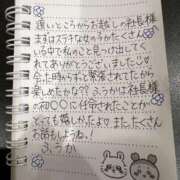 遠いところからお越しの社長様
まずはステキな女の子がたくさん
いる中で私のこと見つけ出してく
れてありがとうございました♡
会った時からずっと緊張されてたから
楽しめたかな?? ふうかは社長様
の初○○に任命されたことが
とても嬉しかったよ♡ またたくさん
お話もしようね!
ふうか